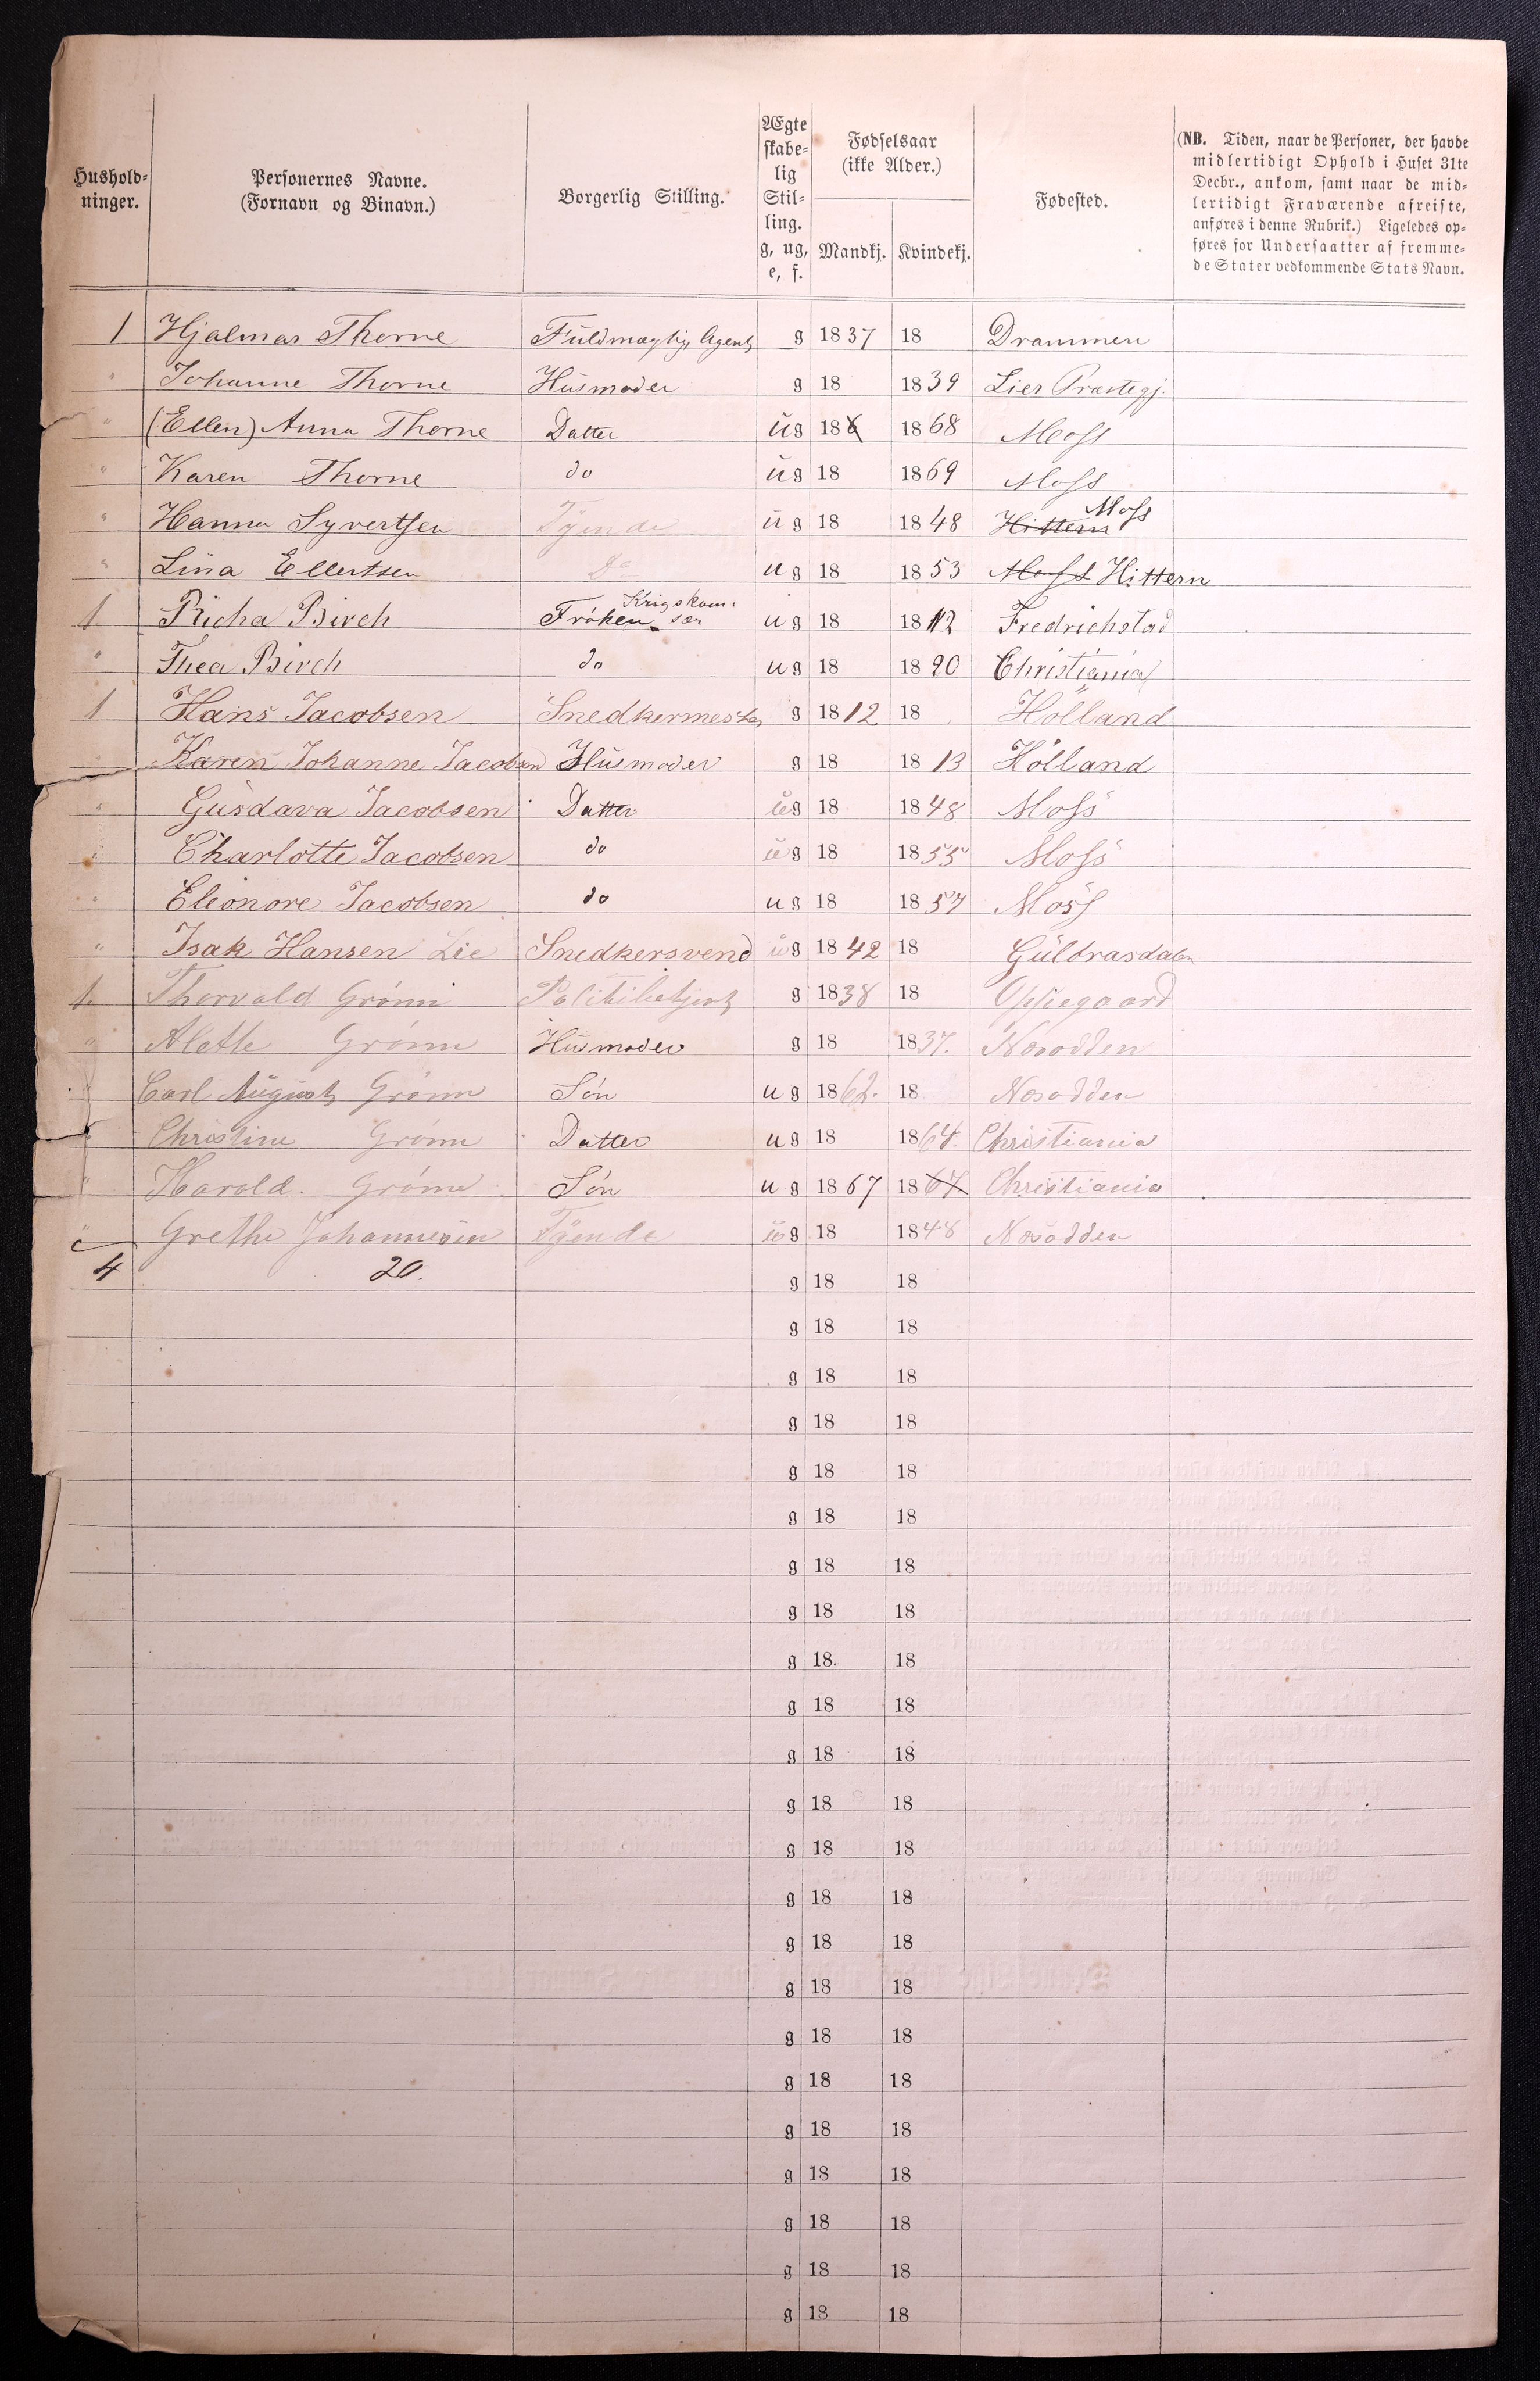 Hushold-
ninger.
Personernes Navne.
(Fornavn og Binavn.)
Borgerlig Stilling.
Ægte
skabe-
lig
Stil-
ling.
g, ug,
e, f.
Fødselsaar
(ikke Alder.)
Mandkj. Kvindekj.
Fødested.
(NB. Tiden, naar de Personer, der havde
midlertidigt Ophold i Huset 31te
Decbr., ankom, samt naar de mid-
lertidigt Fraværende afreiste,
anføres i denne Rubrik.) Ligeledes op-
føres for Undersaatter af fremme-
de Stater vedkommende Stats Navn.
1 Hjalmar Thorne Fuldmægtig, Agent g 1837 18 Drammen
" Johanne Thorne Husmoder g 18 1839 Lier Præstegj.
" (Ellen) Anna Thorne Datter ug 186 1868 Moss
" Karen Thorne do ug 18 1869 Moss
" Hanna Syvertsen Tyende ug 18 1848 Hittern Moss
" Lina Ellertsen do ug 18 1853 Moss Hittern
1 Richa Birch Frøken Krigskom: sær ug 18 1812 Fredrichstad
" Thea Birch do ug 18 1820 Christiania
1 Hans Jacobsen Snedkermester g 1812 18 Hølland
" Karen Johanne Jacobsen Husmoder g 18 1813 Hølland
" Gusdava Jacobsen Datter ug 18 1848 Moss
" Charlotte Jacobsen do ug 18 1855 Moss
" Eleonore Jacobsen do ug 18 1857 Moss
" Isak Hansen Lie Snedkersvend ug 1842 18 Gulbrasdalen
1. Thorvald Grønn Politibetjent g 1838 18 Oppegaard
" Alette Grønn Husmoder g 18 1837. Nesodden
" Carl August Grønn Søn ug 1862. 18 Nesodden
" Christine Grønn Datter ug 18 1864. Christiania
" Harald Grønn Søn ug 1867 1867 Christiania
" Grethe Johannesen Tyende ug 18 1848 Nesodden
4 20. g 18 18
g 18 18
g 18 18
g 18 18
g 18 18
g 18 18
g 18 18
g 18 18
g 18. 18
g 18 18
g 18 18
g 18 18
g 18 18
g 18 18
g 18 18
g 18 18
g 18 18
g 18 18
g 18 18
g 18 18
g 18 18
g 18 18
g 18 18